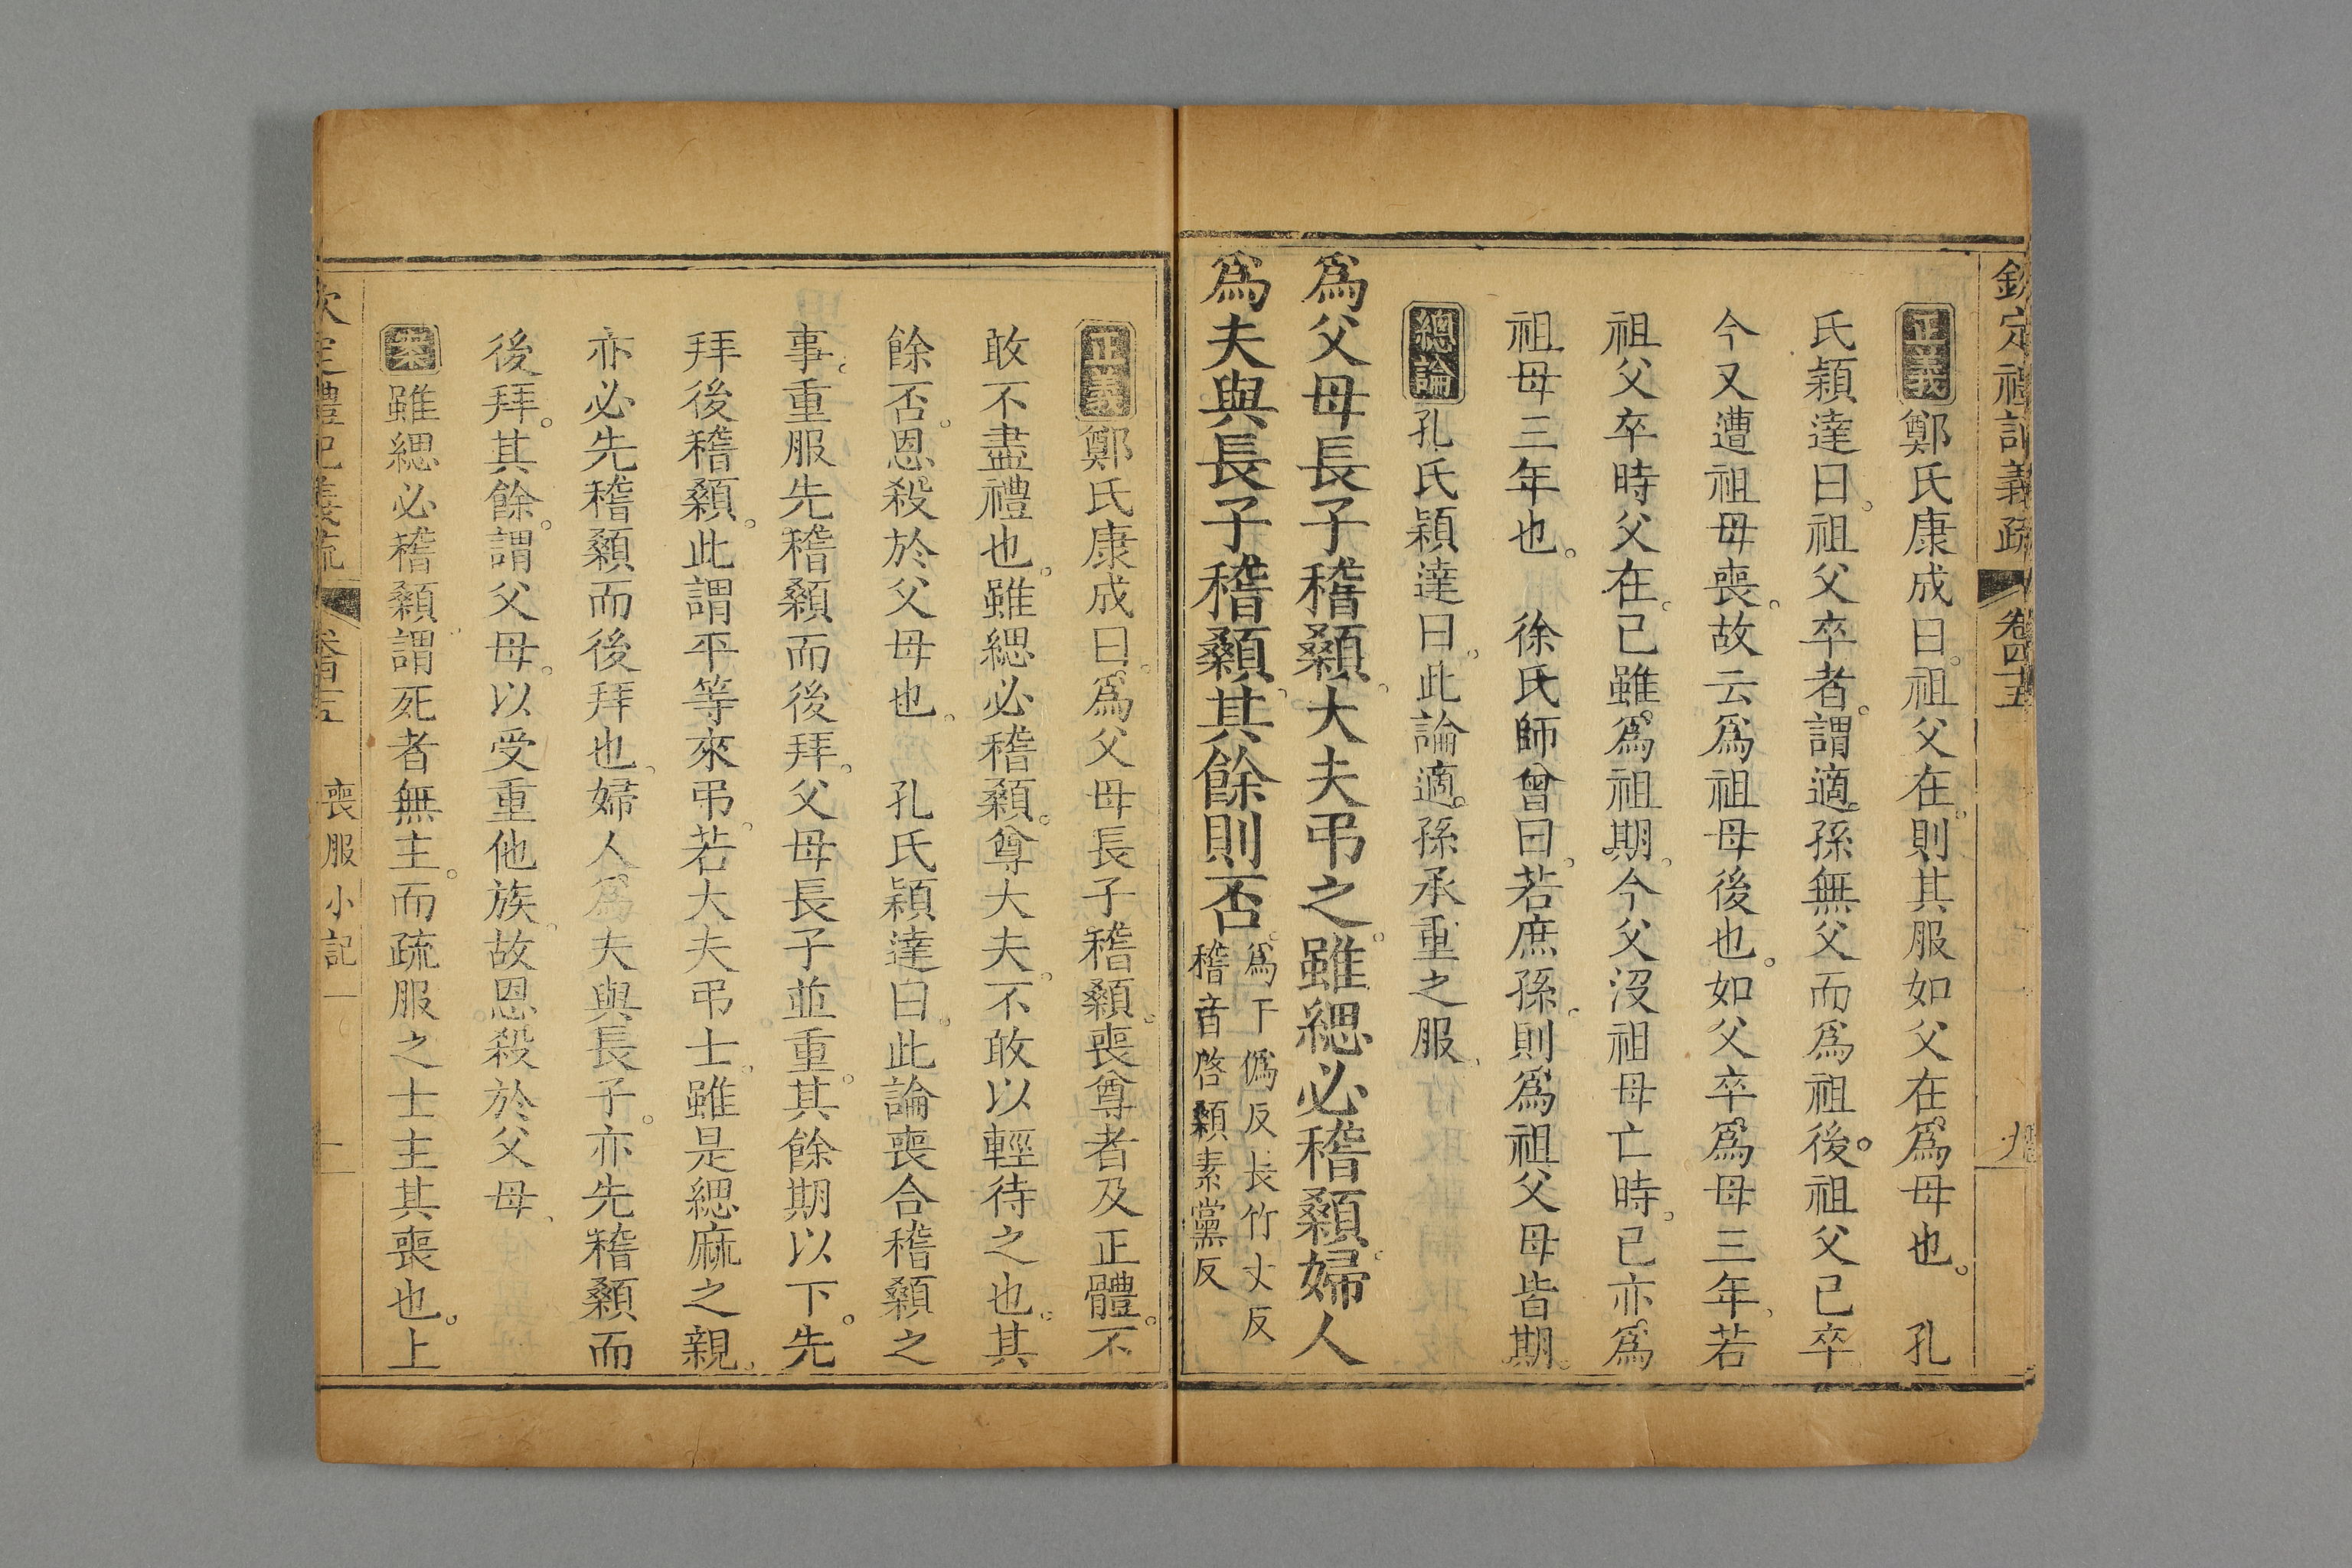 欽定禮記義疏 卷四十五 九
正義 鄭氏康成曰。祖父在。則其服如父在。爲母也。 孔
氏穎達曰。祖父卒者。謂適孫無父而爲祖後。祖父已卒
今又遭祖母喪。故云爲祖母後也。如父卒。爲母三年。若
祖父卒時父在。己雖爲祖期。今父沒祖母亡時。己亦爲
祖母三年也。 徐氏師曾曰。若庶孫。則爲祖父母皆期。
總論 孔氏穎達曰。此論適孫承重之服。
爲父母長子稽顙。大夫弔之。雖緦必稽顙。婦人
爲夫與長子稽顙。其餘則否。
爲下僞反長竹丈反
稽音啓顙素黨反
正義 鄭氏康成曰。爲父母長子稽顙。喪尊者及正體。不
敢不盡禮也。雖緦必稽顙。尊大夫。不敢以輕待之也。其
餘否。恩殺於父母也。 孔氏穎達曰。此論喪合稽顙之
事。重服先稽顙而後拜。父母長子並重。其餘期以下。先
拜後稽顙。此謂平等來弔。若大夫弔士。雖是緦麻之親。
亦必先稽顙而後拜也。婦人爲夫與長子。亦先稽顙而
後拜。其餘。謂父母。以受重他族。故恩殺於父母。
案 雖緦必稽顙。謂死者無主。而疏服之士主其喪也。上
欽定禮記義疏 喪服小記一